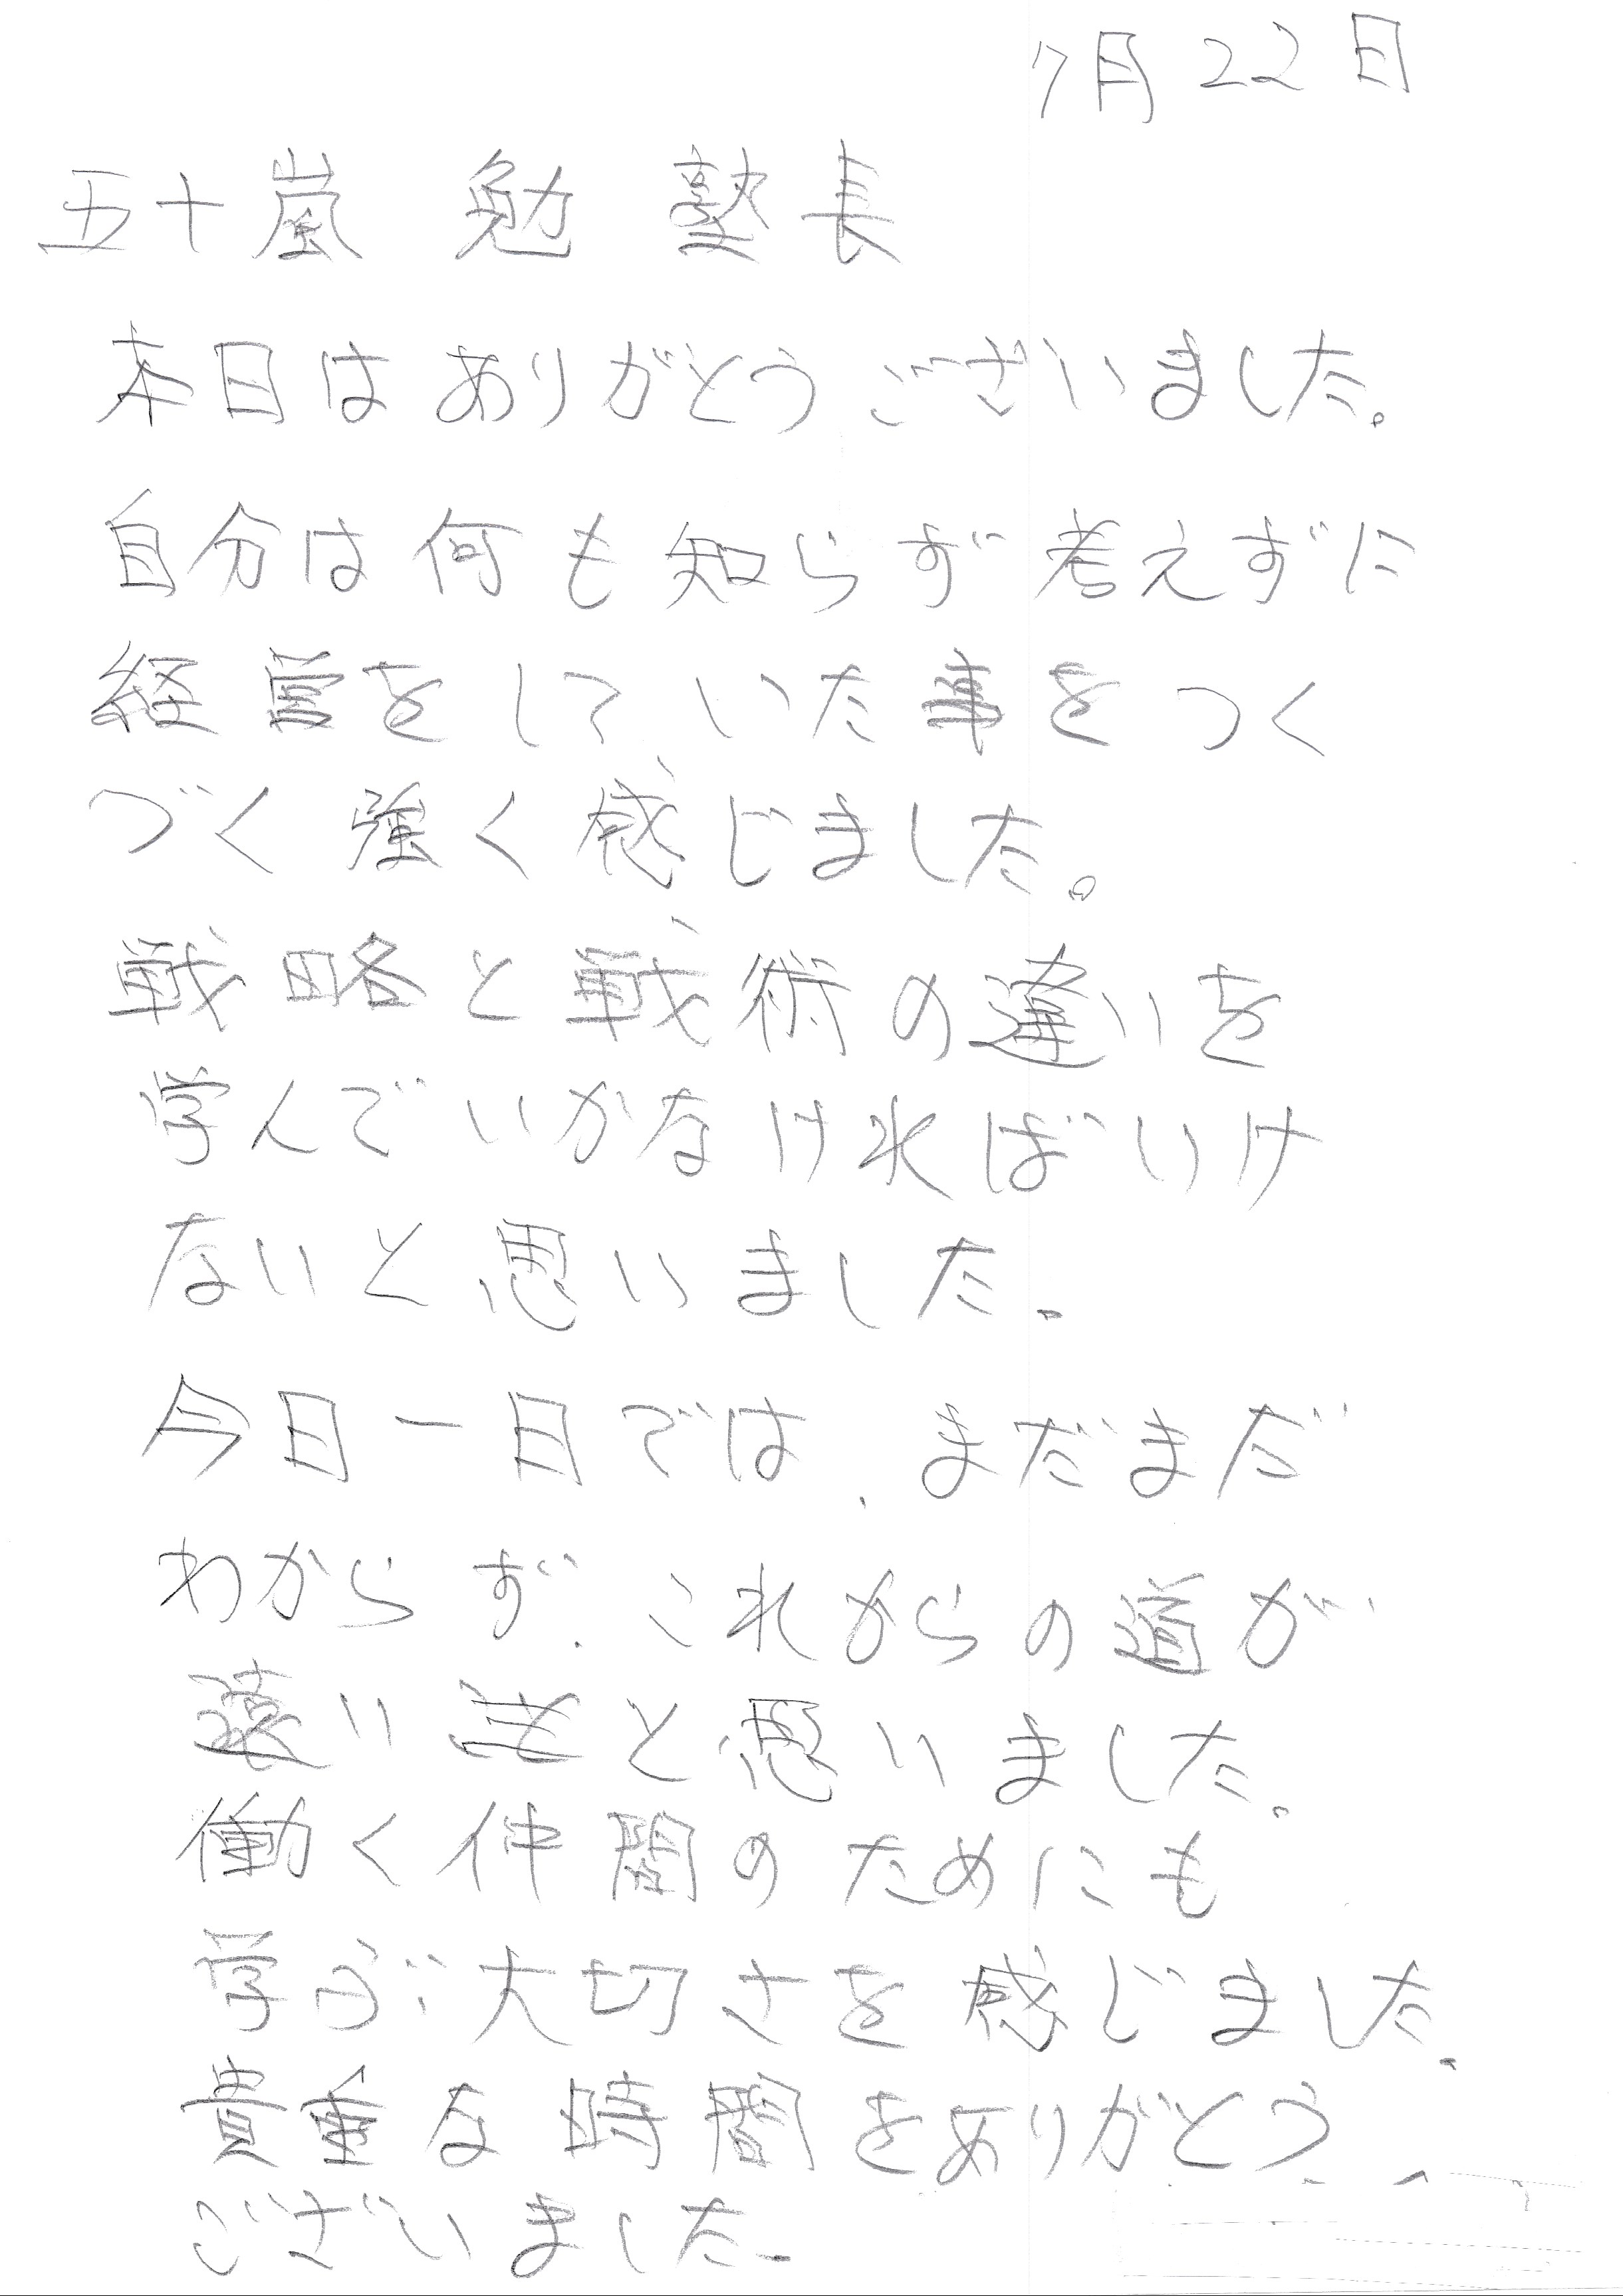 7月22日
五十嵐 勉 塾長
本日はありがとうございました。
自分は何も知らず考えずに
経営をしていた事をつく
づく強く感じました。
戦略と戦術の違いを
学んでいかなければいけ
ないと思いました。
今日一日では、まだまだ
わからず、これからの道が
遠いと思いました。
働く仲間のためにも
学ぶ大切さを感じました。
貴重な時間をありがとう
ございました。